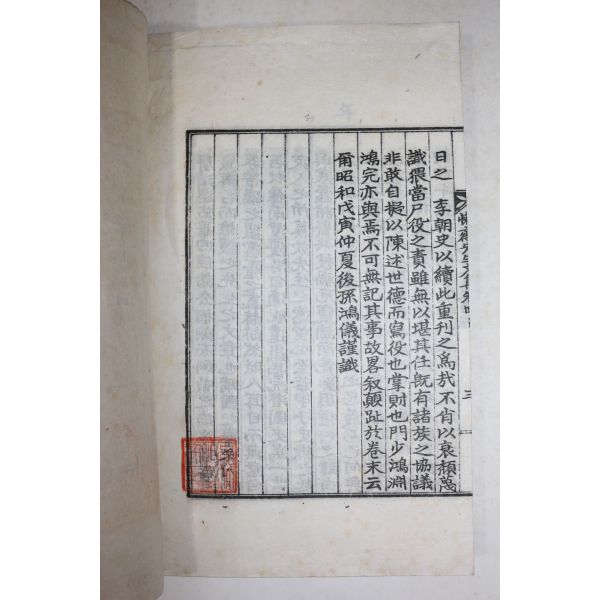 日之 李朝史以續此重刋之爲哉不肖以衰頹蔑
識猥當尸役之責雖無以堪其任旣有諸族之協議
非敢自擬以陳述世德而寫役也掌財也門少鴻淵
鴻完亦與焉不可無記其事故畧叙顛趾於卷末云
爾昭和戊寅仲夏後孫鴻儀謹識
先生文集卷
三